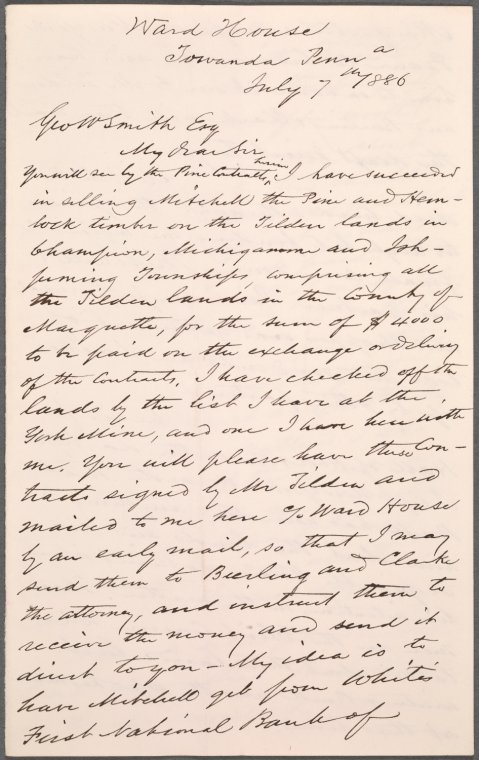 Ward House
Towanda Penn a
July 7th 1886
Geo W Smith Esq
My Dear Sir
You will see by the Pine Contracts herein I have succeeded
in selling Mitchell the Pine and Hem-
lock timber on the Tilden lands in
Champion, Michigamme and Ish-
peming Townships, comprising all
the Tilden lands in the County of
Marquette, for the sum of $4000
to be paid on the exchange or delivery
of the Contracts. I have checked off the
lands by the list I have at the
York Mine, and one I have here with
me. You will please have these Con-
tracts signed by Mr Tilden and
mailed to me here c/o Ward House
by an early mail, so that I may
send them to and Clarke
the attorney, and instruct them to
receive the money and send it
direct to you - My idea is to
have Mitchell get from White's
First National Bank of